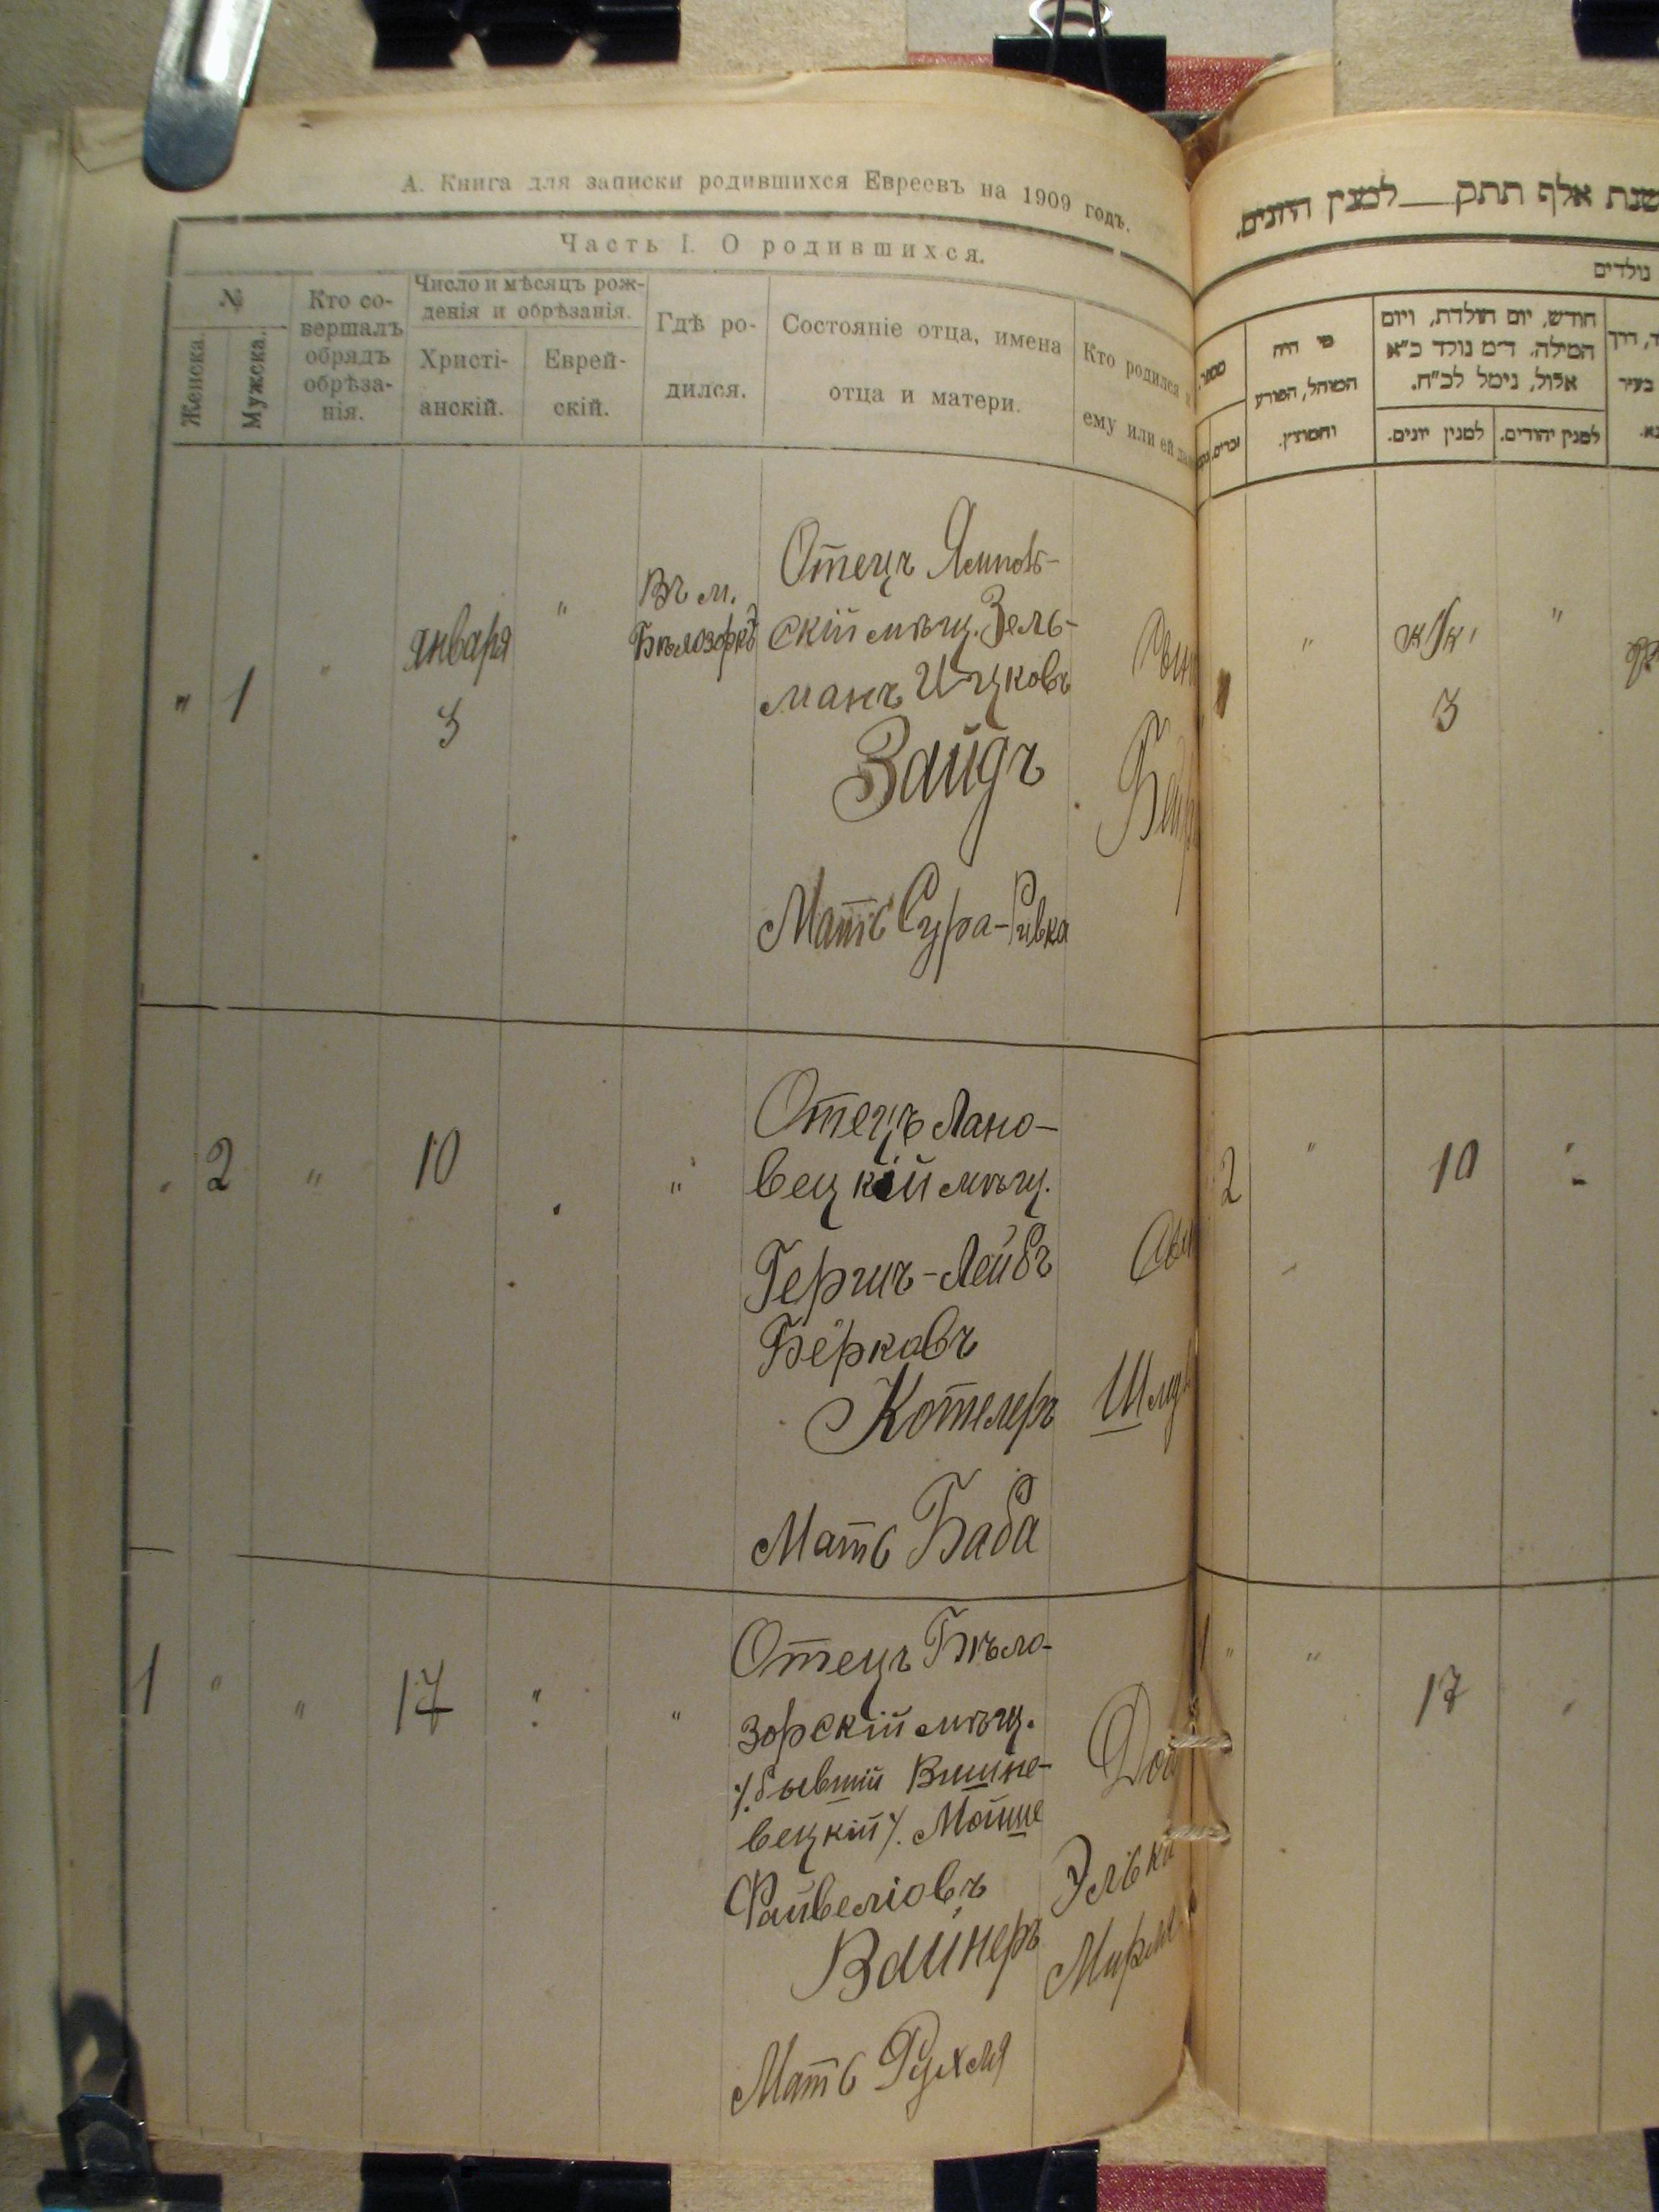 А. Книга для записки родившихся Евреевъ на 1909 годъ.
Часть I. О родившихся.
№
Женска.
Мужска.
Кто со-
вершалъ
обрядъ
обрѣза-
нія.
Число и мѣсяцъ рож-
денія и обрѣзанія.
Христі-
анскій.
Еврей-
скій.
Гдѣ ро-
дился.
Состояніе отца, имена
отца и матери.
Кто родился и
ему или ей
" 1 "
января
3
"
Въ м.
Бѣлозоркѣ
Отецъ
скій мѣщ. Зель-
манъ Ицковъ
Зайдъ
Мать Сура-Ривка
2 " 10 "
Отецъ Лано-
вецкій мѣщ.
Гершъ-Лейбъ
Берковъ
Котлеръ
Мать Баба
1 " " 17 " "
Отецъ Бѣло-
зорскій мѣщ.
/. бывшій Вишне-
вецкій /. Мойше
Файвеліовъ
Вайнеръ
Мать Рухля
Элька
שנת אלף תתק למנין היונים.
נולדים
מי היה
המוהל, הפורע
והמוצץ.
חודש, יום הולדת, ויום
המילה. ד״מ נולד כ״א
אלול, נימל לכ״ח.
למנין יונים.
למנין יהודים.
בעיר
" 3 "
2 " 10
1 " " 17